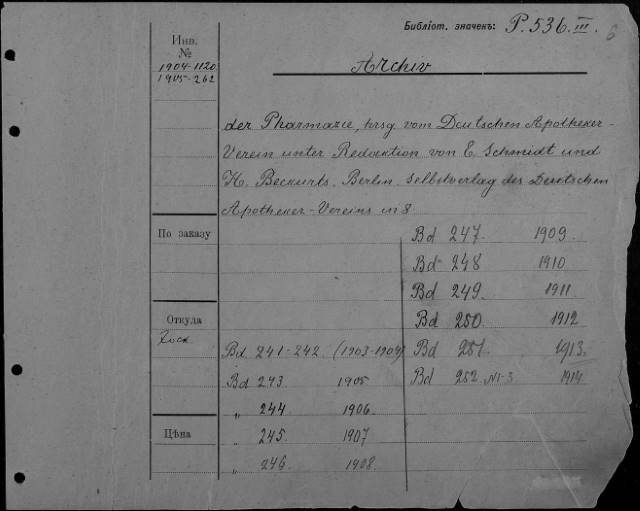 Библіот. значекъ: P.536.III. 6
Инв.
№
1904-1120
1905-262
Archiv
der Pharmazie, hrsg vom Deutschen Apotheker-
Verein unter Redaktion von E. Schmidt und
H. Beckurts. Berlin. Selbstverlag des Deutschen
Apotheker-Vereins in 8.
По заказу
Откуда
Цѣна
Bd. 241-242 (1903-1904)
Bd 243 1905
„ 244 1906
„ 245. 1907
„ 246 1908.
Bd 247. 1909.
Bd 248 1910
Bd 249. 1911
Bd 250. 1912
Bd 251 1913.
Bd 252. №1-3 1914